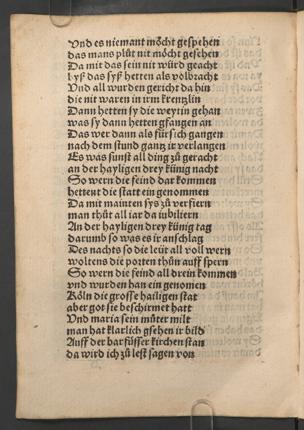 Vnd es niemant möcht gespehen
das mans plůt nit möcht gesehen
Da mit das sein nit würd geacht
byß das syß hetten als volbracht
Vnd all wurden gericht da hin
die nit waren in irm krenzlin
Dann hetten sy die weyrin gehan
was sy dann hetten gfangen an
Das wer dann als für sich gangen
nach dem stund gantz ir verlangen
Es was sunst all ding zů geracht
an der hayligen drey künig nacht
So wern die feind dar kommen
hettent die statt ein genommen
Da mit mainten sys zů verfiern
man thůt all iar da iubiliern
An der hayligen drey künig tag
darumb so was es ir anschlag
Des nachts so die leüt all voll wern
woltens die porten thůn auff spern
So wern die feind all drein kommen
vnd wurden han ein genomen
Köln die grosse hailigen stat
aber got sie beschirmet hatt
Vnd maria sein můter milt
man hat klarlich gsehen ir bild
Auff der barfüsser kirchen stan
da wird ich zů lest sagen von